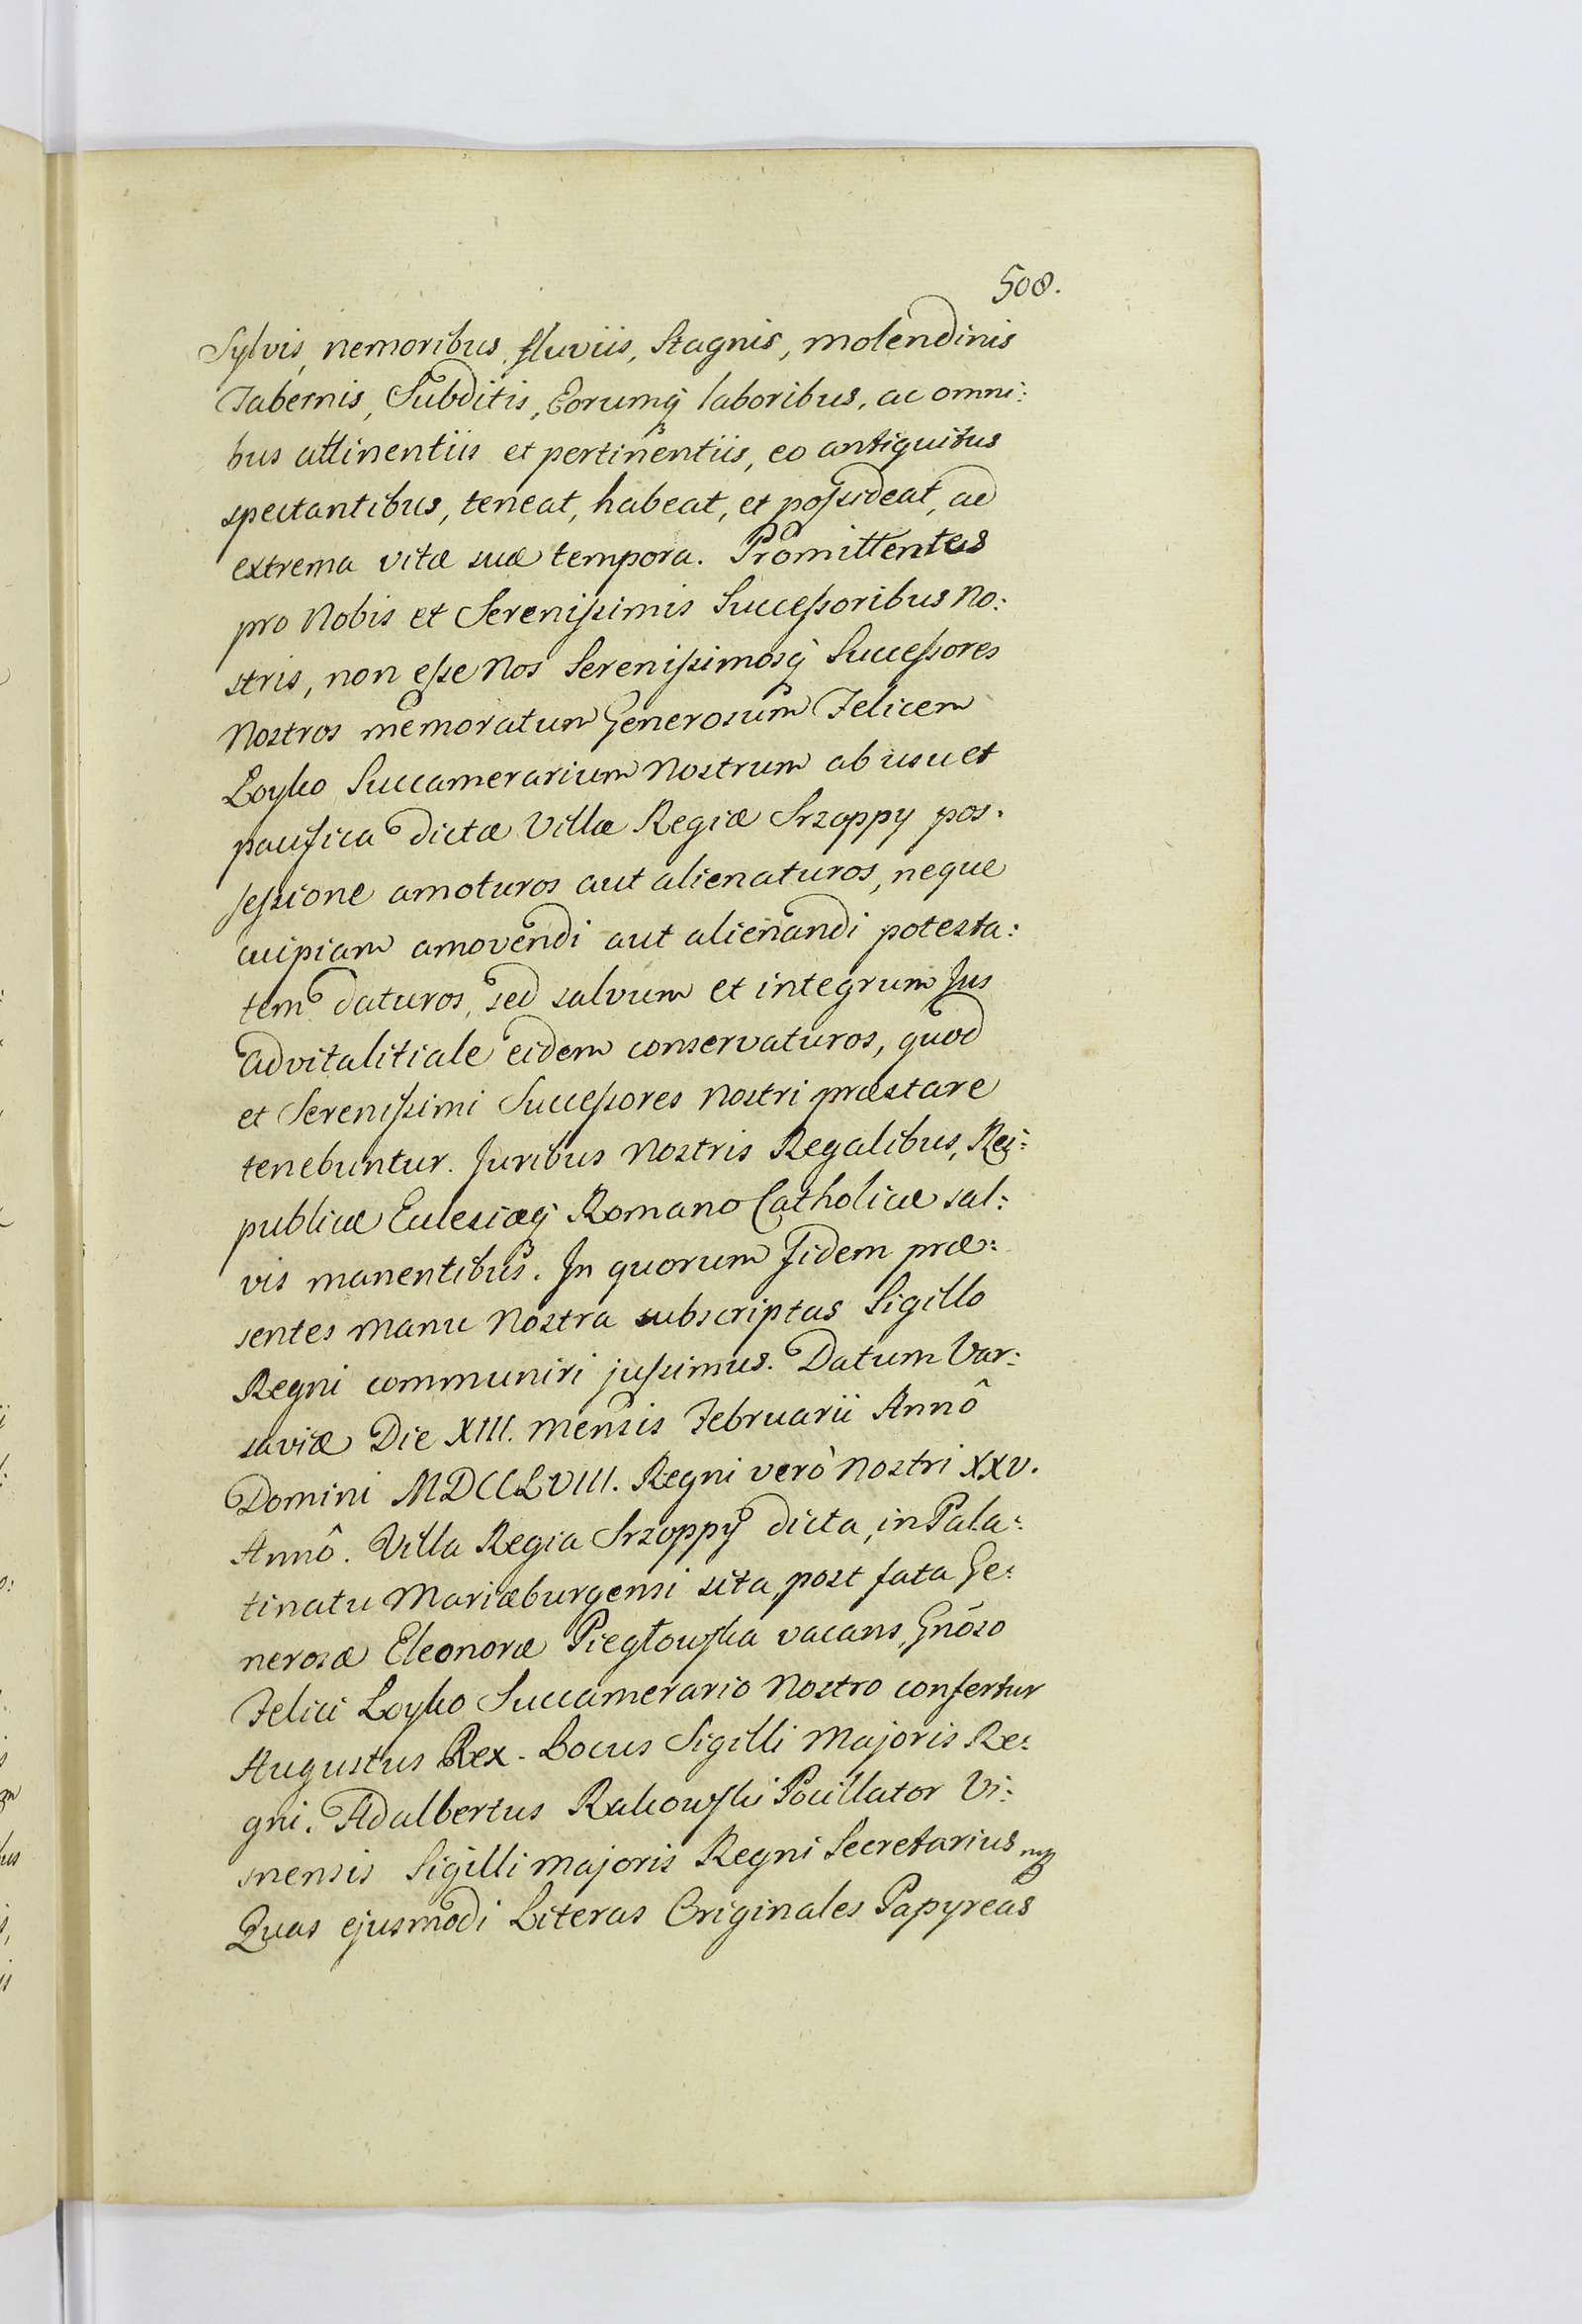 508.
Sylvis, nemoribus, fluviis, Stagnis, molendinis
Tabernis, Subditis, Eorumq́ laboribus, ac omni:
bus attinentiis et pertinentiis, eo antiquitus
spectantibus, teneat, habeat, et poſsideat, ad
extrema vitæ suæ tempora. Promittentes
pro Nobis et Sereniſsimis Succeſsoribus No:
stris, non eſse Nos Sereniſsimosq́ Succeſsores
Nostros memoratum Generosum Felicem
Loyko Succamerarium Nostrum ab usu et
pacifica dictæ Villæ Regiæ Srzoppy pos:
ſeſsione amoturos aut alienaturos, neque
cuipiam amovendi aut alienandi potesta:
tem daturos, sed salvum et integrum Jus
Advitalitiale eidem conservaturos, quod
et Sereniſsimi Succeſsores Nostri præstare
tenebuntur. Juribus Nostris Regalibus, Rei:
publicæ Eclesiæq́ Romano Catholicæ sal:
vis manentibus. In quorum Fidem præ:
sentes Manu Nostra subscriptas Sigillo
Regni communiri juſsimus. Datum Var:
saviæ Die XIII. Mensis Februarii Annô
Domini MDCCLVIII. Regni verò Nostri XXV.
Annô. Villa Regia Srzoppy dicta, in Pala:
tinatu Mariæburgensi sita, post fata Ge:
nerosæ Eleonoræ Piegłowſka vacans, Gnōso
Felici Loyko Succamerario Nostro confertur
Augustus Rex. Locus Sigilli Majoris Re:
gni. Adalbertus Rakowſki Pocillator Vi:
snensis Sigilli majoris Regni Secretarius mp
Quas ejusmodi Literas Originales Papyreas